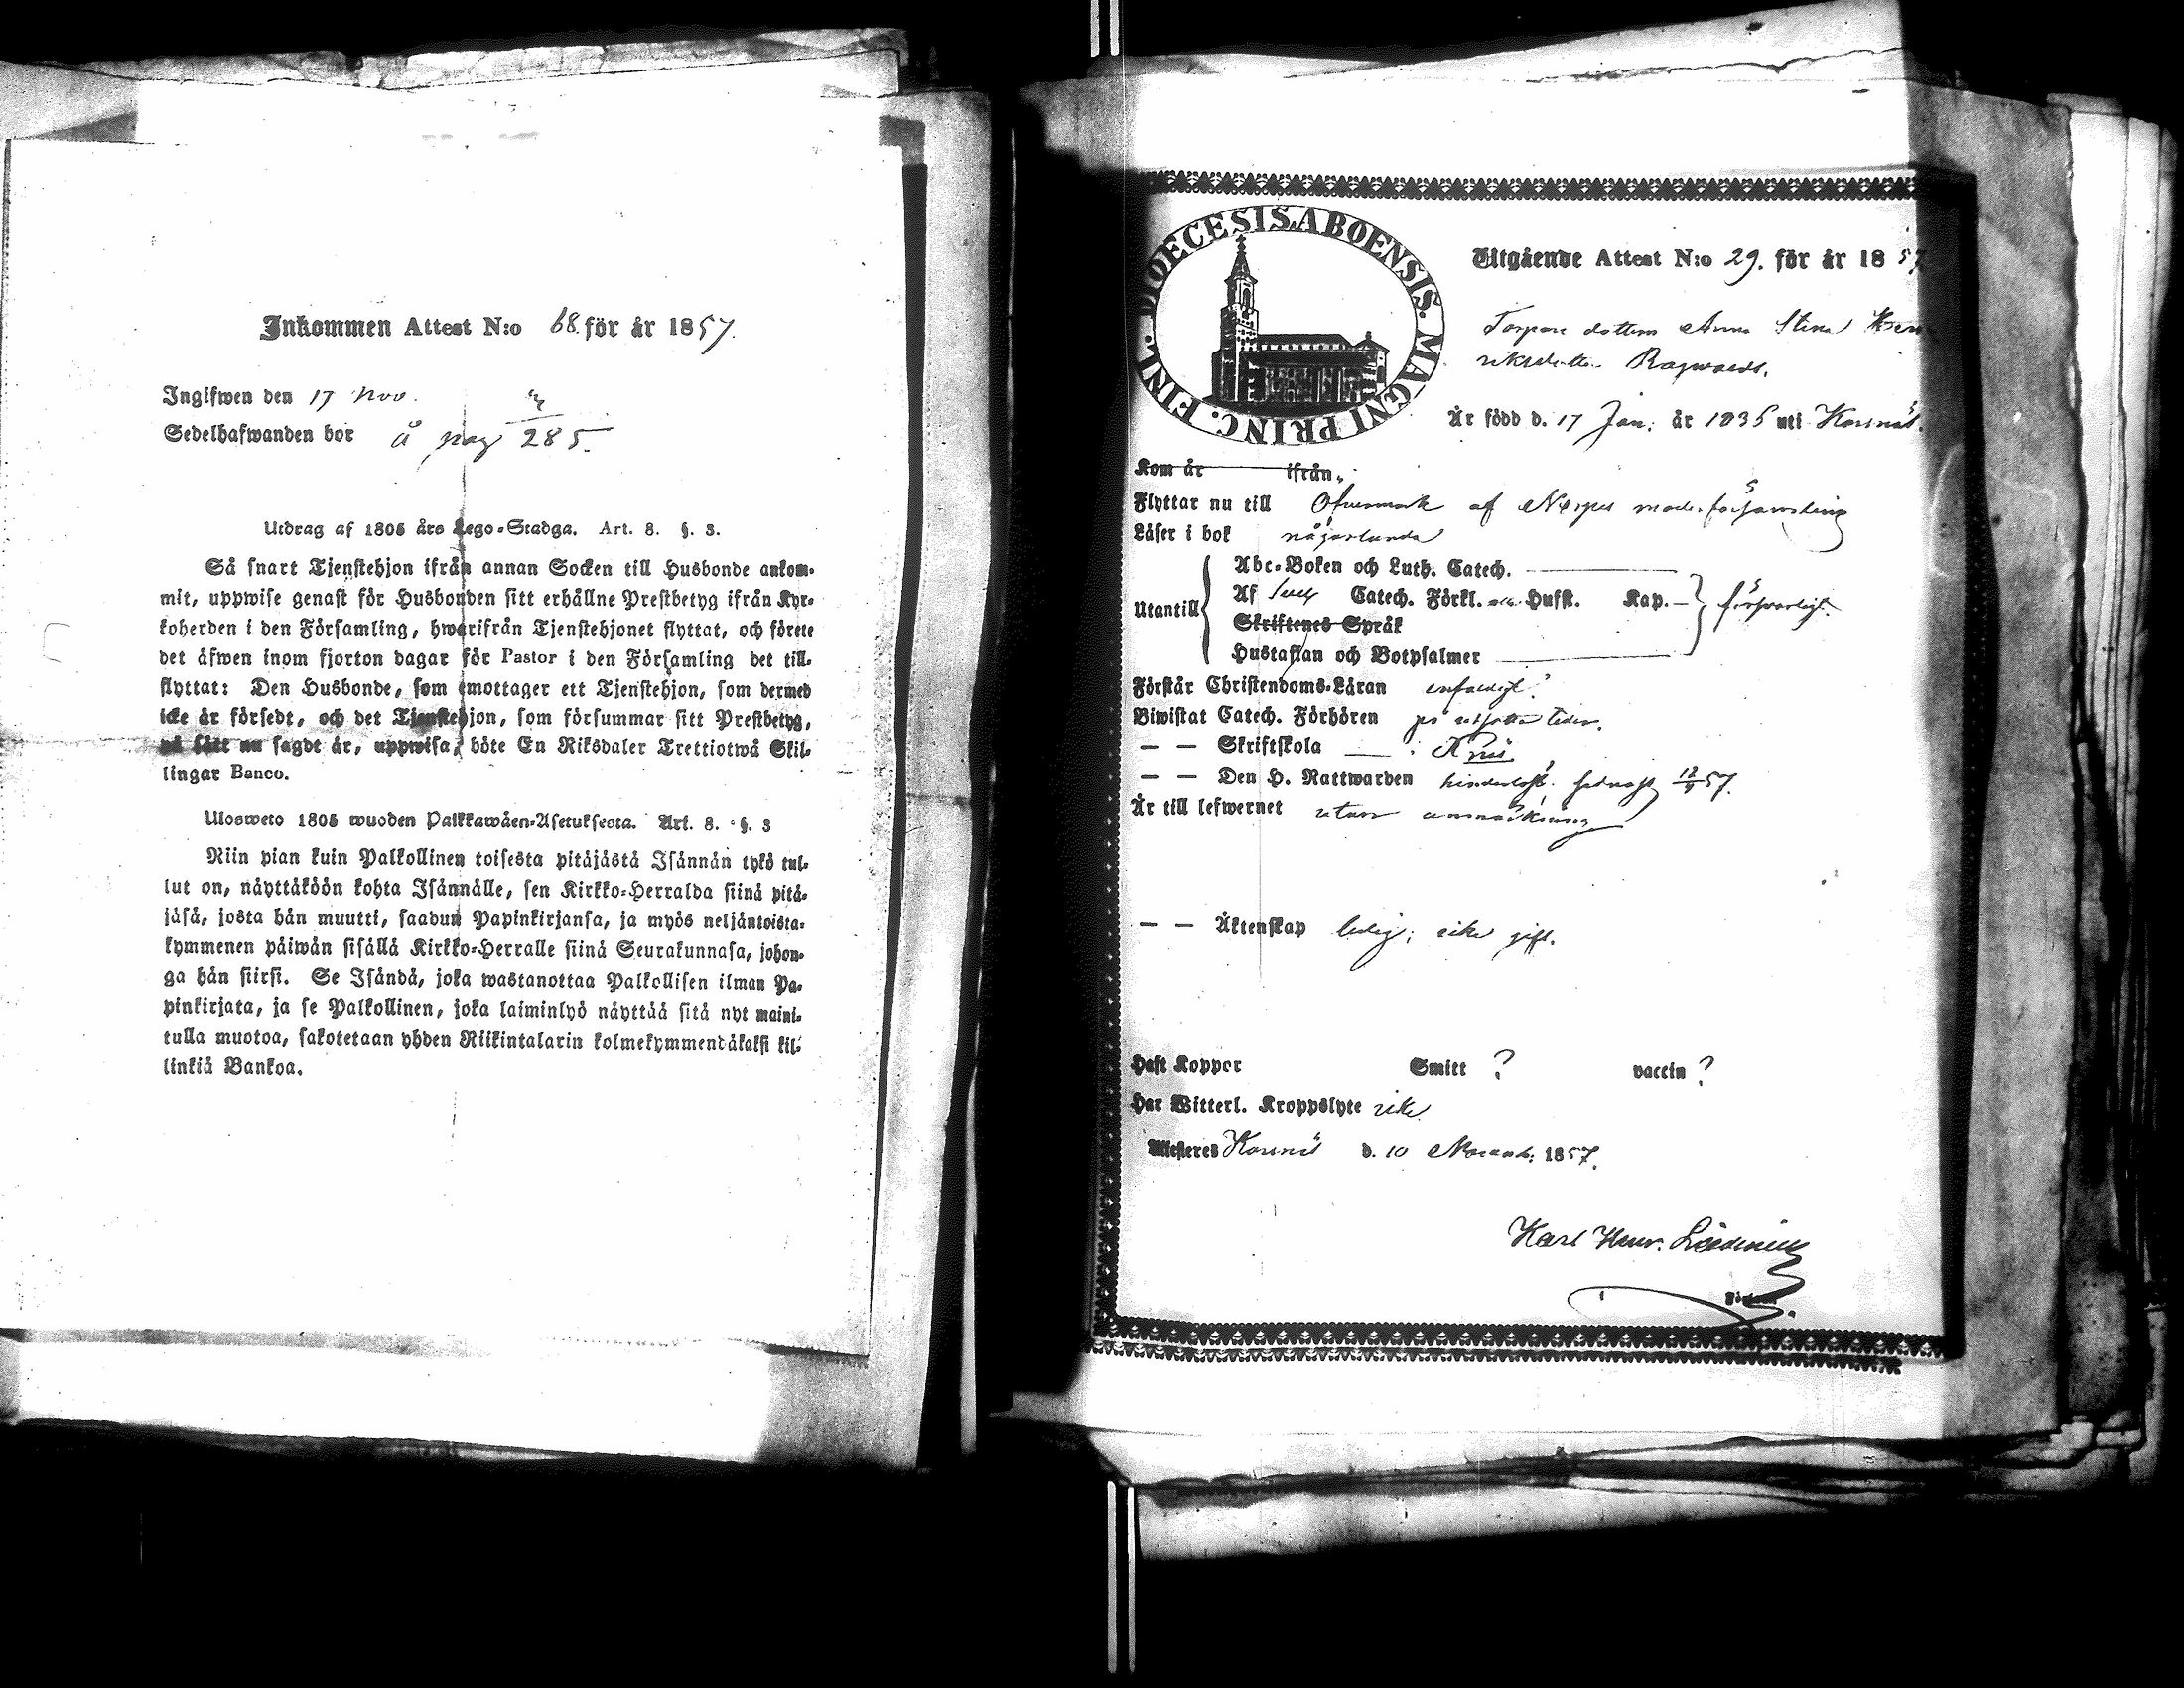 Inkommen Attest N:o 68. för år 1857.
Ingifwen den 17 Nov.
Sedelhafwanden bor å pag 285.
Utdrag af 1805 års Lego-Stadga. Art. 8. §. 3.
Så snart Tjenstehjon ifrån annan Socken till Husbonde ankom-
mit, uppwise genast för Husbonden sitt erhållne Prestbetyg ifrån Kyr-
koherden i den Församling, hwarifrån Tjenstehjonet flyttat, och förete
det äfwen inom fjorton dagar för Pastor i den Församling det till-
flyttat: Den Husbonde, som emottager ett Tjenstehjon, som dermed
icke är försedt, och det Tjenstehjon, som försummar sitt Prestbetyg,
på sätt nu sagdt är, uppwisa, böte En Riksdaler Trettiotwå Skil-
lingar Banco.
Ulosweto 1805 wuoden Palkkawäen-Asetuksesta. Art. 8. §. 3
Niin pian kuin Palkollinen toisesta pitäjästä Isännän tykö tul-
lut on, näyttäköön kohta Isännälle, sen Kirkko-Herralda siinä pitä-
jäsä, josta hän muutti, saadun Papinkirjansa, ja myös neljäntoista-
kymmenen päiwän sisällä Kirkko-Herralle siinä Seurakunnasa, johon-
ga hän siirsi. Se Isändä, joka wastanottaa Palkollisen ilman Pa-
pinkirjata, ja se Palkollinen, joka laiminlyö näyttää sitä nyt maini-
tulla muotoa, sakotetaan yhden Riikintalarin kolmekymmendäkaksi kil-
linkiä Bankoa.
DIOECESIS ABOENSIS. MAGNI PRINC. FINL.
Utgående Attest N:o 29. för år 1857
Torpare dottern Anna Stina Hen
riksdotter Ragwalds.
Är född d. 17 Jan. år 1835 uti Korsnäs.
Kom år ifrån
Flyttar nu till Öfvermark af Nerpes moderförsamling
Läser i bok någorlunda
Utantill
Abc-Boken och Luth. Catech.
Af Catech. Förkl. Hufst. Kap. försvarligt.
Skriftenes Språk
Hustaflan och Botpsalmer
Förstår Christendoms-Läran enfaldigt.
Biwistat Catech. Förhören på utsatta tider.
— — Skriftskola
— — Den H. Nattwarden hinderlöst. sednast 57.
Är till lefwernet utan anmärkning
— — Äktenskap ledig; icke gift.
Haft Koppor Smitt ? vaccin ?
Har Witterl. Kroppslyte icke
Attesteres Korsnäs d. 10 Novemb. 1857.
Karl Henr. Lidenius